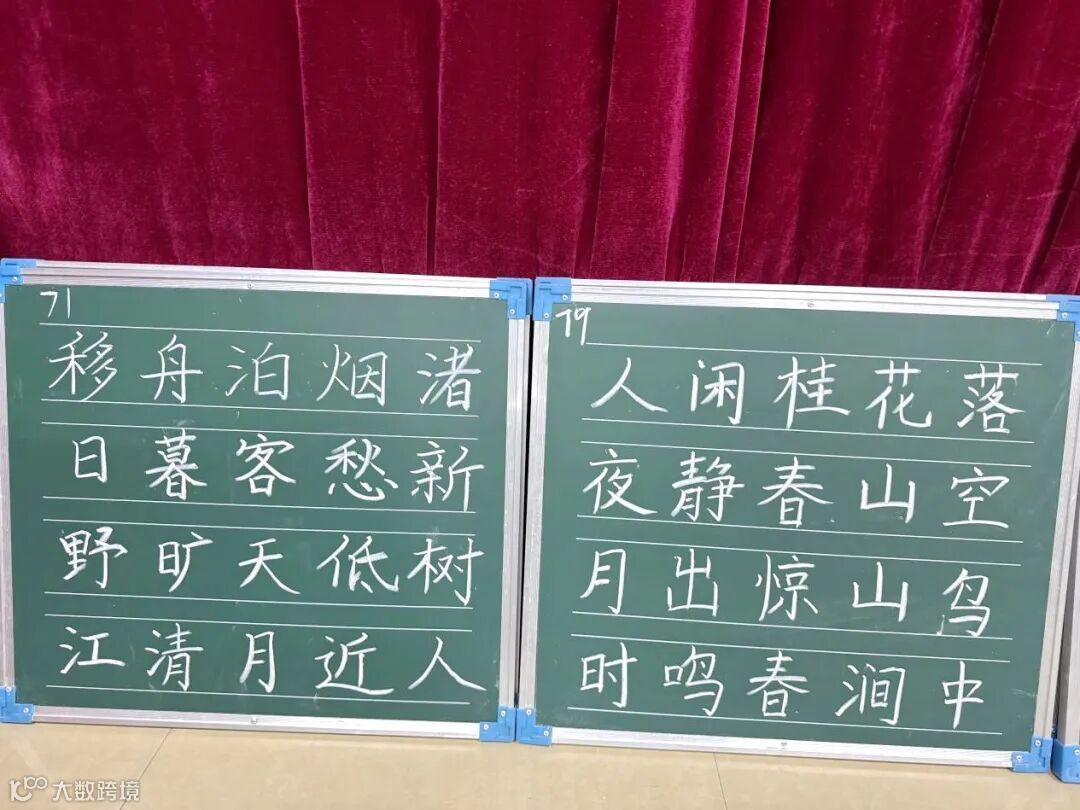 71
移舟泊烟渚
日暮客愁新
野旷天低树
江清月近人
79
人闲桂花落
夜静春山空
月出惊山鸟
时鸣春涧中
大数跨境